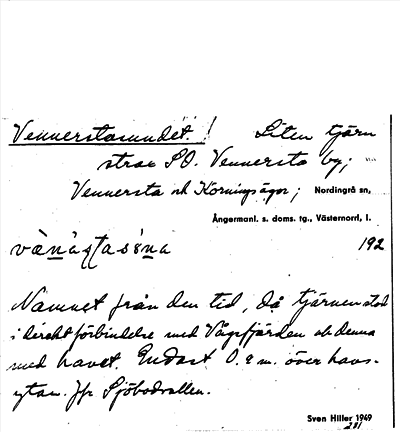 Vennerstasundet! Liten tjärn
strax SO. Vennersta by;
Vennersta och Korningsägor; Nordingrå sn,
Ångermanl. s. doms. tg., Västernorrl. l.
192
Namnet från den tid, då tjärnen stod
i direkt förbindelse med Vågsfjärden och denna
med havet. Endast 0.8 m. över havs-
ytan. Jfr Sjöbodvallen.
Sven Hiller 1949